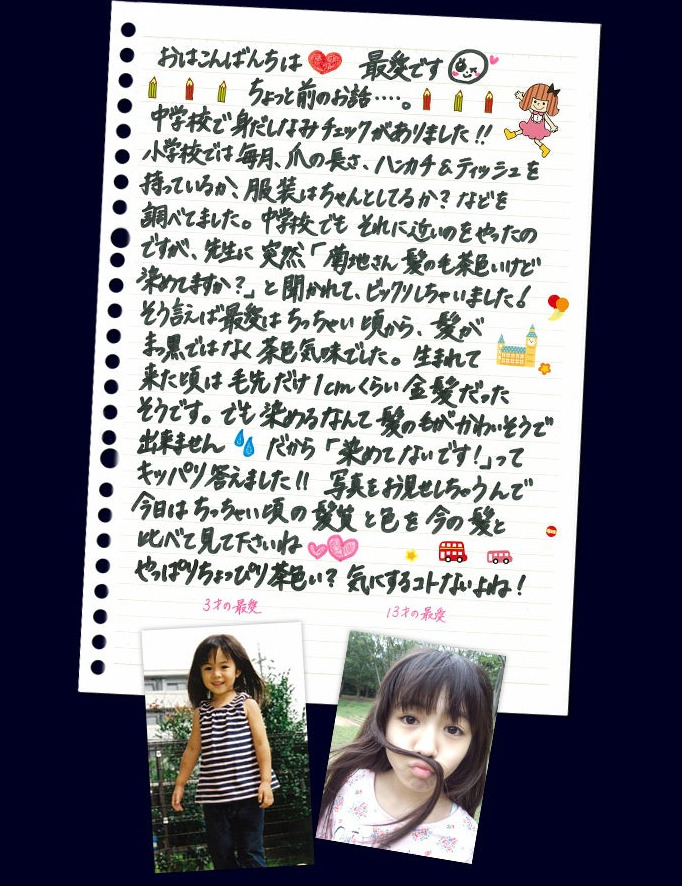 おはこんばんちは 最愛です
ちょっと前のお話‥‥。
中学校で身だしなみチェックがありました!!
小学校では毎月、爪の長さ、ハンカチ&ティッシュを
持っているか、服装はちゃんとしてるか?などを
調べてました。中学校でも それに近いのをやったの
ですが、先生に突然「菊地さん髪の毛茶色いけど
染めてますか?」と聞かれて、ビックリしちゃいました!
そう言えば最愛はちっちゃい頃から、髪が
まっ黒ではなく茶色気味でした。生まれて
来た頃は毛先だけ1cmくらい金髪だった
そうです。でも染めるなんて髪の毛がかわいそうで
出来ません だから「染めてないです!」って
キッパリ答えました!! 写真をお見せしちゃうんで
今日はちっちゃい頃の髪質と色を今の髪と
比べて見て下さいね
やっぱりちょっぴり茶色い?気にするコトないよね!
3才の最愛 13才の最愛